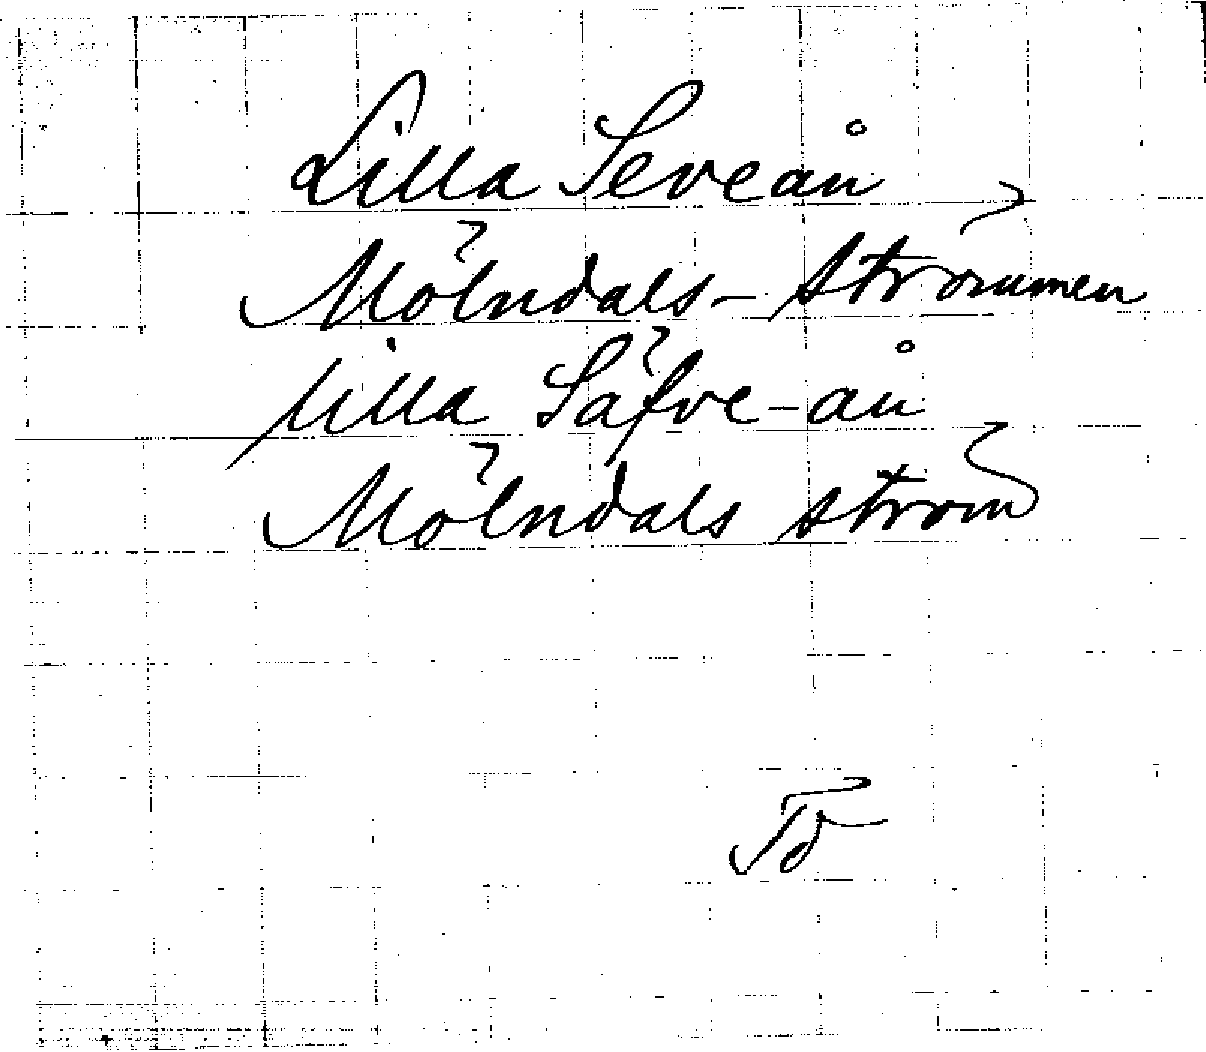 Lilla Seveån
Mölndals-strömmen
Lilla Säfve-ån
Mölndals ström